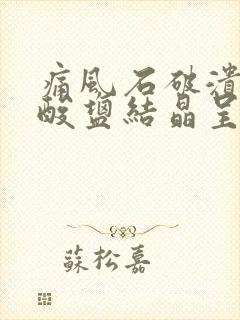 痛風石破潰
酸鹽結晶呈
蘇松嘉